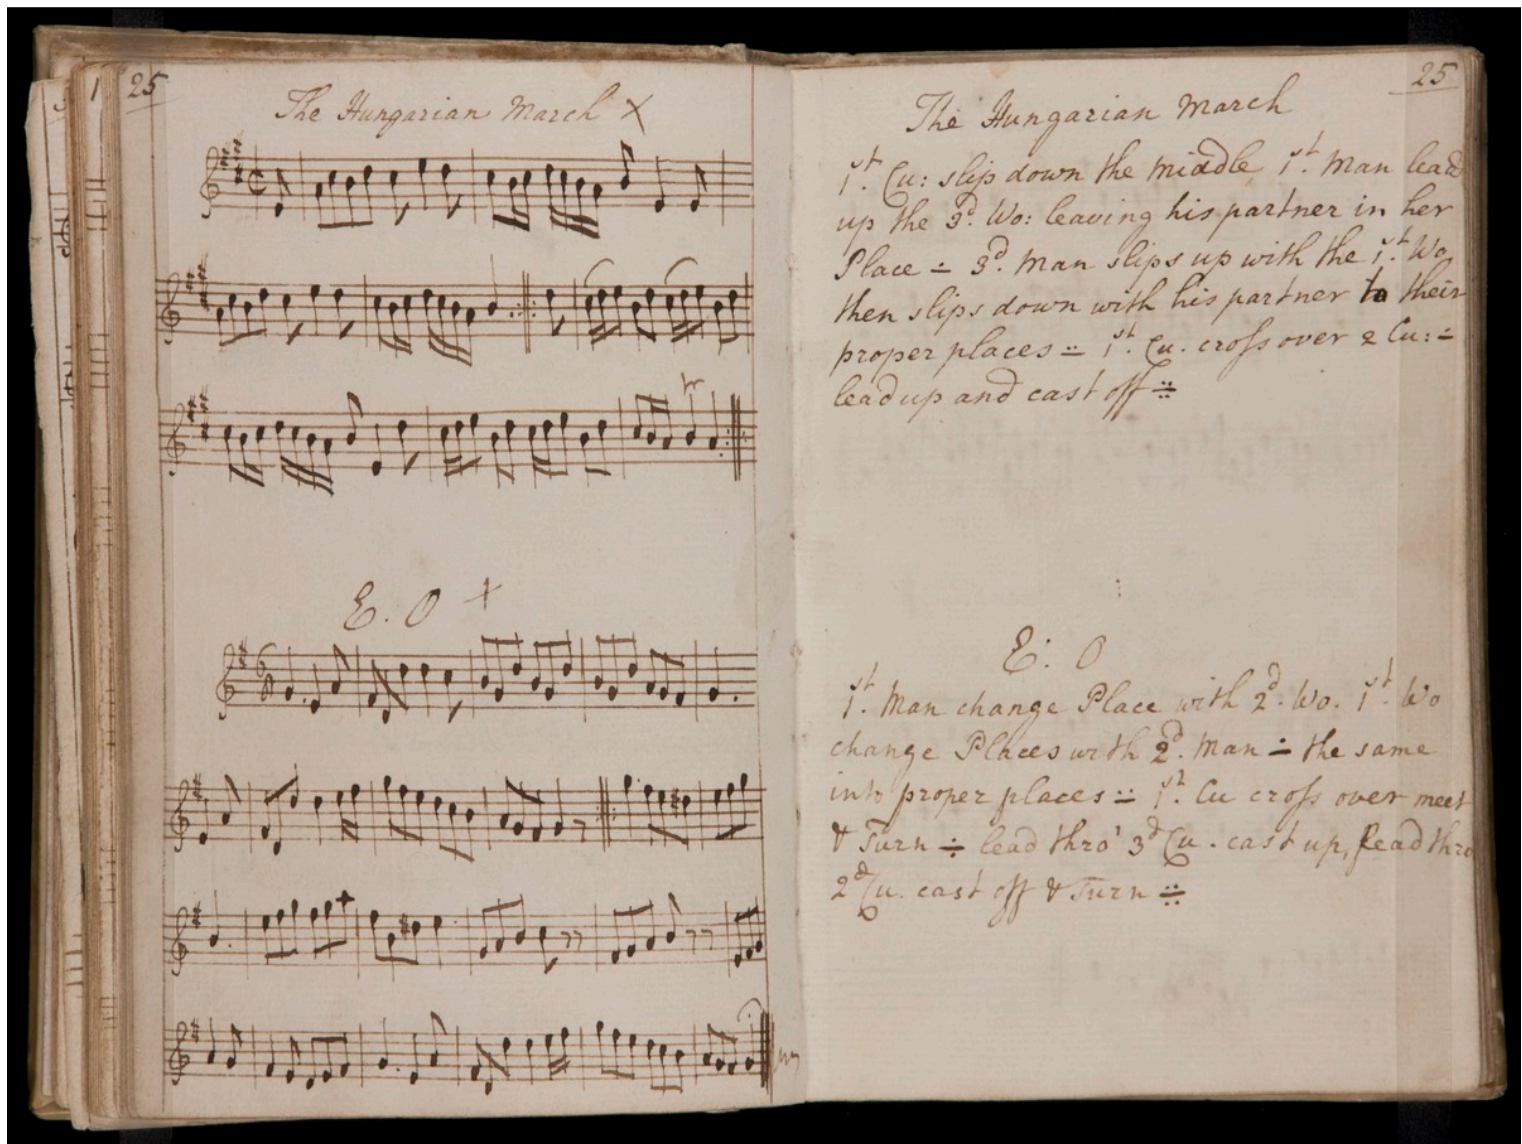 25
The Hungarian March X
E. O X
25
The Hungarian March
1st. Cu: slip down the middle 1st. Man lead
up the 3d. Wo: leaving his partner in her
Place ÷ 3d. Man slips up with the 1st. Wo
then slips down with his partner to their
proper places ÷ 1st. Cu. cross over 2 Cu: ÷
lead up and cast off ÷
E. O
1st. Man change Place with 2d. Wo. 1st. Wo
change Places with 2d. Man ÷ the same
into proper places ÷ 1st. Cu cross over meet
& Turn ÷ lead thro' 3d Cu. cast up, lead thro
2d Cu. cast off & Turn ÷